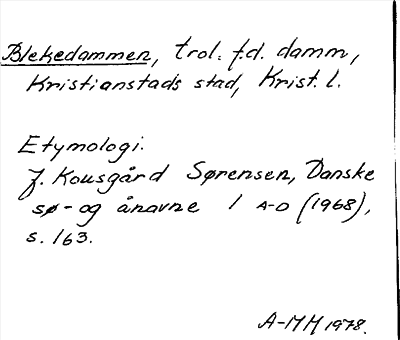 Blekedammen, trol. f.d. damm,
Kristianstads stad, Krist. l.
Etymologi.
J. Kousgård Sørensen, Danske
sø- og ånavne 1 A-D (1968),
s. 163.
A-MH 1978.